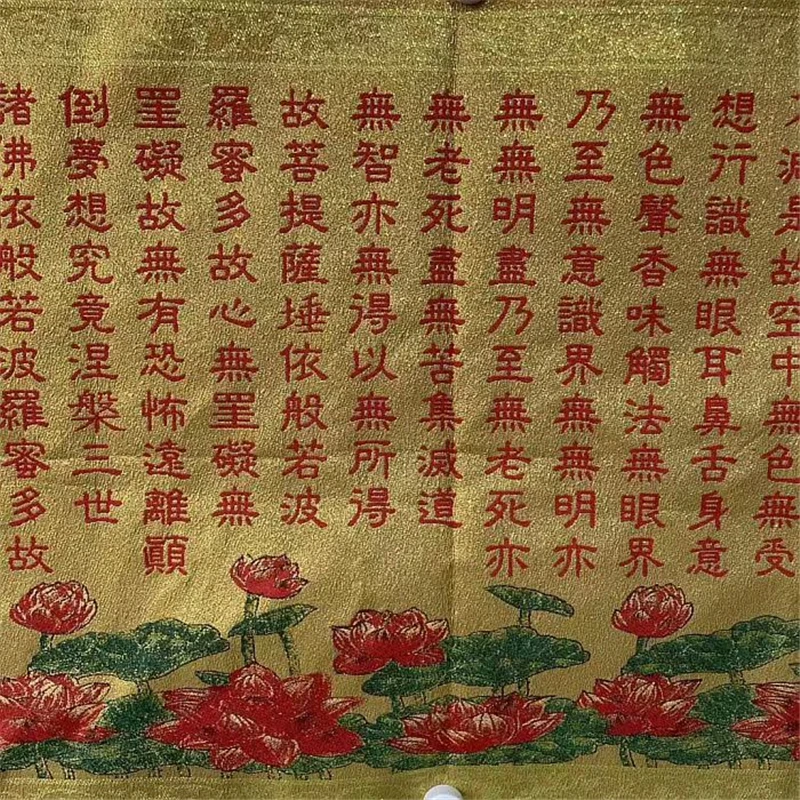 減是故空中無色無受
想行識無眼耳鼻舌身意
無色聲香味觸法無眼界
乃至無意識界無無明亦
無無明盡乃至無老死亦
無老死盡無苦集滅道
無智亦無得以無所得
故菩提薩埵依般若波
羅蜜多故心無罣礙無
罣礙故無有恐怖遠離顛
倒夢想究竟涅槃三世
諸佛依般若波羅蜜多故